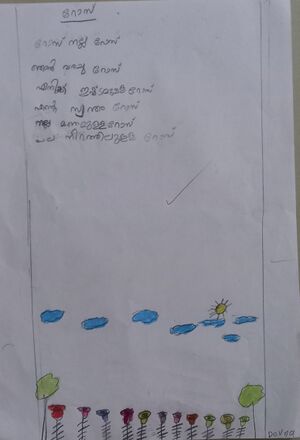 റോസ്
റോസ് നല്ല റോസ്
ഞാൻ വരച്ച റോസ്
എനിക്ക് ഇഷ്ടമുള്ള റോസ്
എന്റെ സ്വന്തം റോസ്
നല്ല മണമുള്ള റോസ്
പല നിറത്തിലുള്ള റോസ്